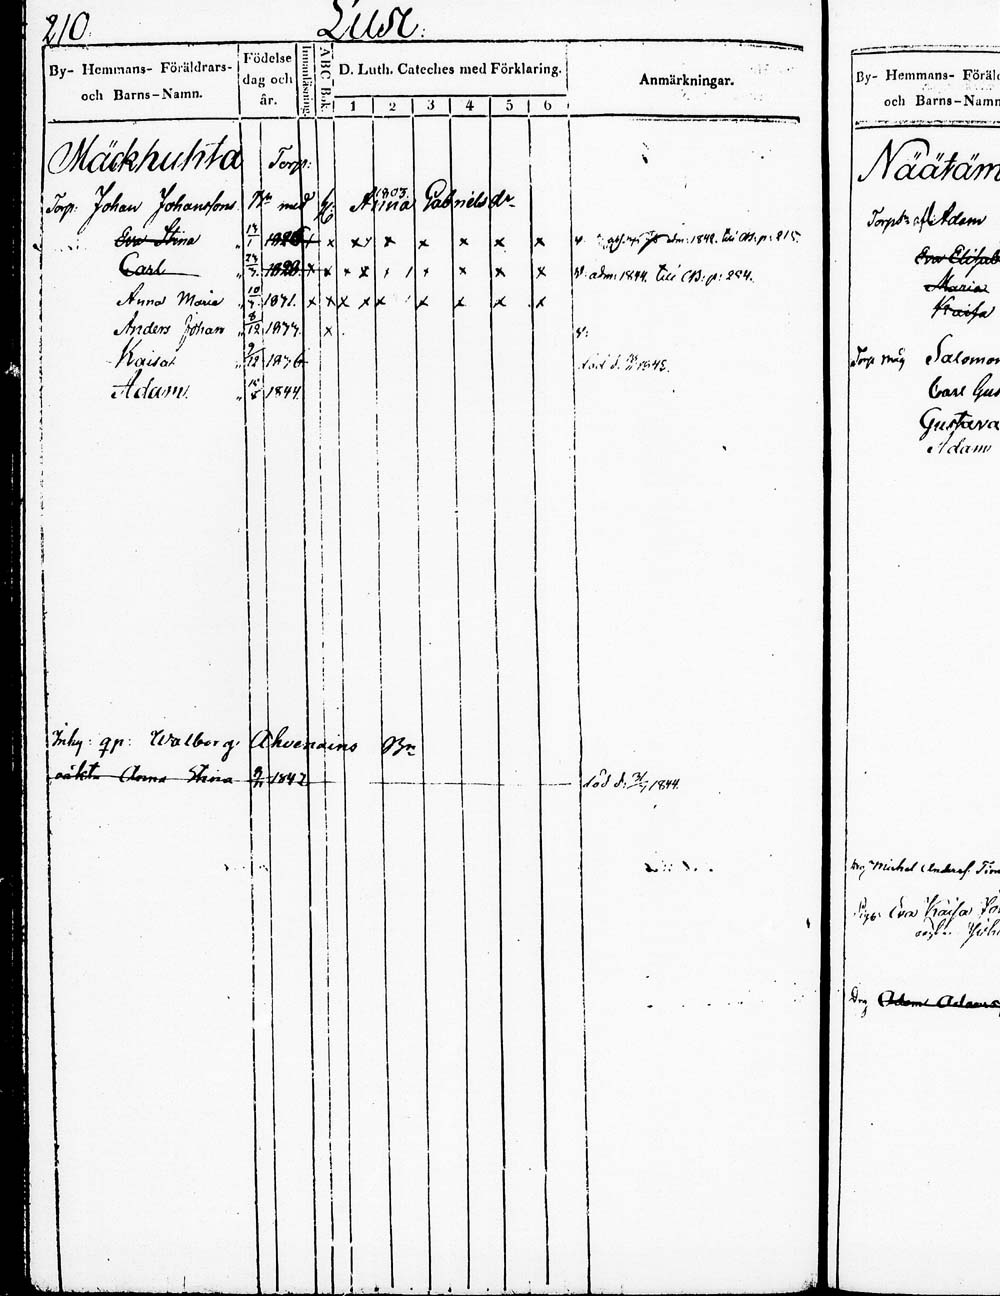 210.
By- Hemmans- Föräldrars- och Barns-Namn.
Födelse dag och år.
Innanläsning.
ABC-Bok.
D. Luth. Cateches med Förklaring.
1 2 3 4 5 6
Anmärkningar.
Mäckhuhta Torp:
Torp: Johan Johanssons Bn med Anna 1803. Gabrielsdr
Eva Stina 1826 x x x x x x x x adm: 1842. till CB: p: 215.
Carl 1828 x x x x x x x x adm: 1844. till CB: p: 284.
Anna Maria 10/7 1831. x x x x x x x x x
Anders Johan 8/12 1833. x
Kaisa 9/12 1836 död d. 1845.
Adam. 1844
Inhy: qp: Walborg Ahvenains Bn
oäkta Anna Stina 1842 död d: 1844.
By- Hemmans- Föräld
och Barns-Namn
Näätäm
Adam
Eva Elisab
Maria
Kaisa
Torp måg Salomon
Carl Gus
Gustava
Adam
Drg Michel Anders. Tim
Pig: Eva Kaisa
Drg Adam Adams